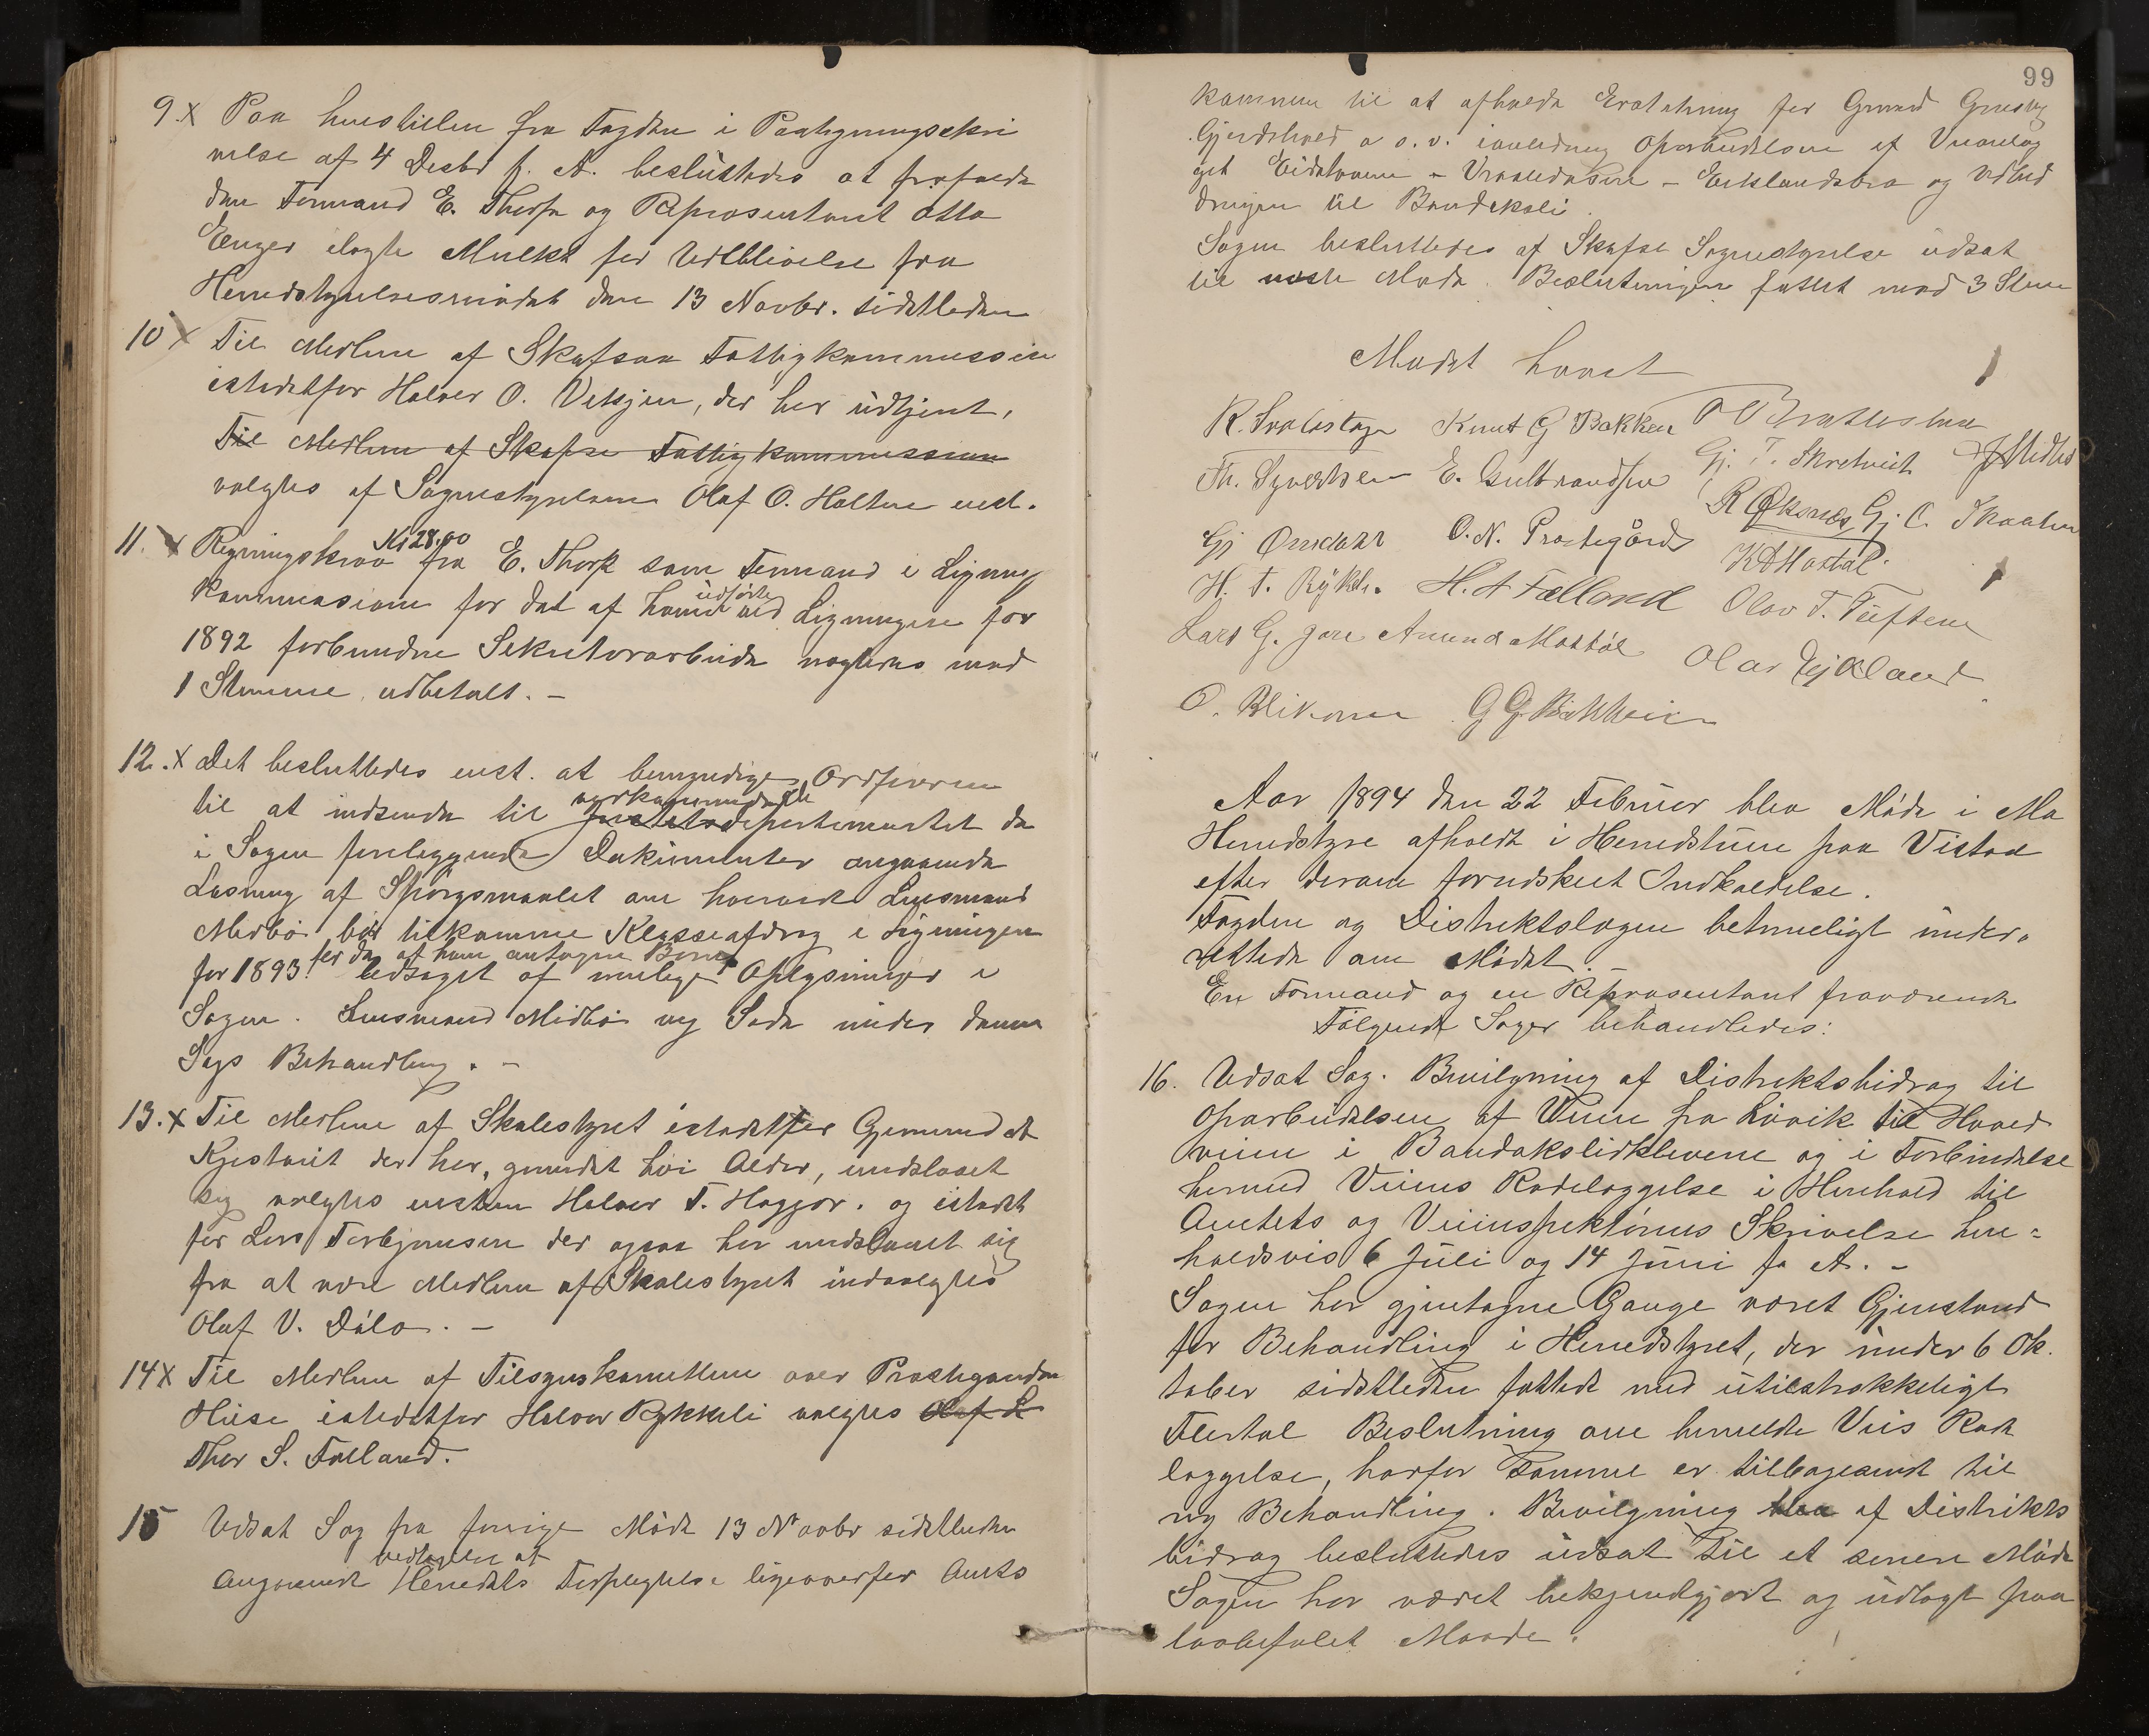 9. x Paa henstillen fra Fogden i Paategningsskri
velse af 4 Decbr f. A. besluttedes at frafalde
den Formand E. Thorp og Repræsentant Otto
ilagte Mulkt for Udeblivelse fra
Herredstyrelsesmødet den 13 Novbr. sidstleden
10 x Til Medlem af Skafsaa Fattigkommission
istedetfor Halvor O. Vetsjen, der har udtjent,
Til Medlem af Skafsa Fattigkommission
valgtes af Sognestyrelsen Olaf O. Holtene enst.
11. x Regningskrav Kr 28.00 fra E. Thorp som Formand i Lignings
kommissionen for det af ham udførte ved Ligningen for
1892 forbundne Sekretærarbeide nægtedes mod
1 Stemme udbetalt. –
12. x Det besluttedes enst. at bemyndige Ordføreren
til at indsende til vedkommende departementet de
i Sagen foreliggende Dokumenter angaaende
Løsning af Spørgsmaalet om hvorvidt Lensmand
Midbø bør tilkomme Klasseafdrag i Ligningen
for 1893 for de af ham antagne Børn ledsaget af mulige Oplysninger i
Sagen. Lensmand Midbø veg Sæde under denne
Sags Behandling. –
13. x Til Medlem af Skolestyret istedetfor Gjermund A
der har, grundet høi Alder, undslaaet
sig valgtes Halvor T. Haggor. og istedet
for Lars Torbjørnsen der ogsaa har undslaaet sig
fra at være Medlem af Skolestyret indvalgtes
Olaf V. Dalo. –
14 x Til Medlem af Tilsynskomiteen over Præstegaardens
Huse istedetfor Halvor Rykkeli valgtes Olaf L
Thor S. Folland.
15 Udsat Sag fra forrige Møde 13 Novbr sidstleden
angaaende vedtagelse af Herredets Forpligtelse ligeoverfor Amts
99
kommunen til at afholde Erstatning for Grund Grustag
Gjerdehold o. s. v. i anledning Oparbeidelsen af Veianlæg
get Eidstovene – Vraaledosen – og Vedlid
dragen til Bandaksli.
Sagen besluttedes af Skafse Sognestyrelse udsat
til næste Møde. Beslutningen fattet mod 3 Stem
Mødet hævet
R. Knut G Bakken O Bratterteine
Th. Syvertsen E. Gulbrandsen Gj. T. Skretveit J Midbø
R Øksnes Gj. C. Skaalen
Gj Omdahl O. N. Prestegård K A Mostøl.
H. T. Rykl. H. A Fælland Olav T. Tuftene
Lars G. Jore Amund Mostøl Olav Gjelland
O. G G Bakkheim
Aar 1894 den 22 Februar blev Møde i Mo
Herredstyre afholdt i Herredstuen paa Vistad
efter derom forudskeet Indkaldelse.
Fogden og Distriktslægen betimeligt under-
rettede om Mødet. –
En Formand og en Repræsentant fraværende
Følgende Sager behandledes:
16. Udsat Sag. Bevilgning af Distriktsbidrag til
Oparbeidelsen af Veien fra Laavik til Hoved
veien i Bandakslidklevene og i Forbindelse
hermed Veiens Rodelæggelse i Henhold til
Amtets og Veiinspektørens Skrivelse hen=
holdsvis 6 Juli og 14 Juni f. A. –
Sagen har gjentagne Gange været Gjenstand
for Behandling i Herredstyret, der under 6 Ok.
tober sidstleden fattede med utilstrækkeligt
Flertal Beslutning om bemeldte Veis Rode
læggelse, hvorfor Samme er tilbagesendt til
ny Behandling. Bevilgning blev af Distrikts
bidrag besluttedes udsat til et senere Møde
Sagen har været bekjendtgjort og udlagt paa
lovbefalet Maade.